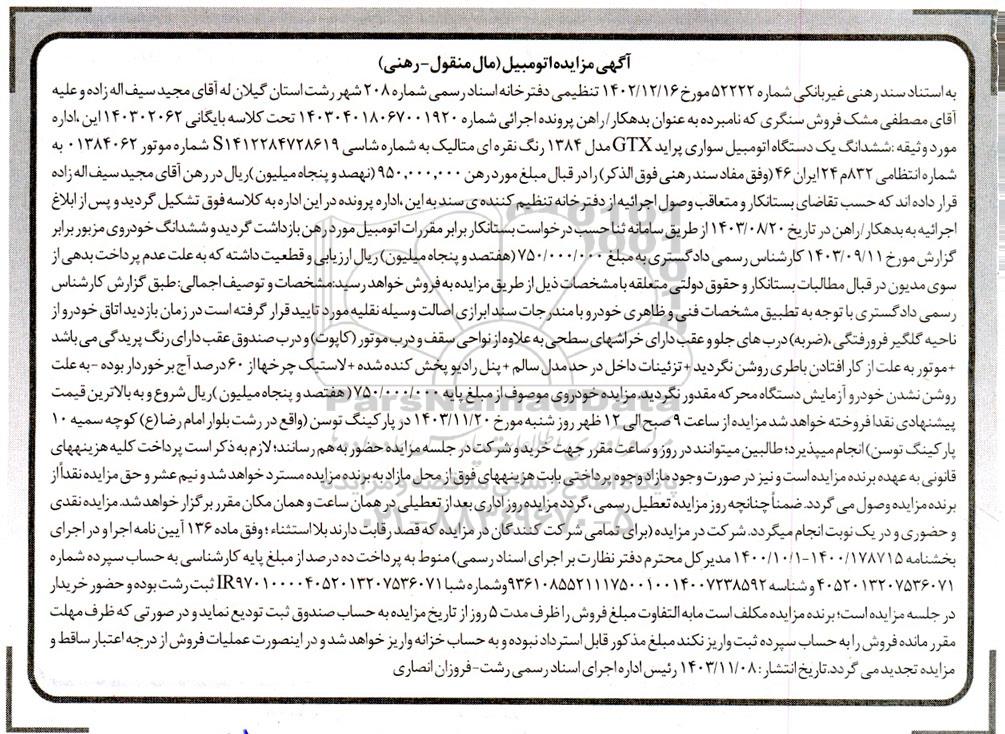 آگهی مزایده اتومبیل (مال منقول-رهنی)
به استناد سند رهنی غیربانکی شماره ۵۲۲۲۲ مورخ ۱۴۰۲/۱۲/۱۶ تنظیمی دفترخانه اسناد رسمی شماره ۲۰۸ شهر رشت استان گیلان له آقای مجید سیف اله زاده و علیه
آقای مصطفی مشک فروش سنگری که نامبرده به عنوان بدهکار/راهن پرونده اجرائی شماره ۱۴۰۳۰۴۰۱۸۰۶۷۰۰۱۹۲۰ تحت کلاسه بایگانی ۱۴۰۳۰۲۰۶۲ این ،اداره
مورد وثیقه :ششدانگ یک دستگاه اتومبیل سواری پراید GTX مدل ۱۳۸۴ رنگ نقره ای متالیک به شماره شاسی S۱۴۱۲۲۸۴۷۲۸۶۱۹ شماره موتور ۰۱۳۸۴۰۶۲ به
شماره انتظامی ۸۳۲م۲۴ ایران ۴۶ (وفق مفاد سند رهنی فوق الذکر) را در قبال مبلغ مورد رهن ۹۵۰,۰۰۰,۰۰۰ (نهصد و پنجاه میلیون )ریال در رهن آقای مجید سیف اله زاده
قرار داده اند که حسب تقاضای بستانکار و متعاقب وصول اجرائیه از دفترخانه تنظیم کننده ی سند به این ،اداره پرونده در این اداره به کلاسه فوق تشکیل گردید و پس از ابلاغ
اجرائیه به بدهکار/راهن در تاریخ ۱۴۰۳/۰۸/۲۰ از طریق سامانه ثنا حسب درخواست بستانکار برابر مقررات اتومبیل مورد رهن بازداشت گردید و ششدانگ خودروی مزبور برابر
گزارش مورخ ۱۴۰۳/۰۹/۱۱ کارشناس رسمی دادگستری به مبلغ ۷۵۰/۰۰۰/۰۰۰ (هفتصد و پنجاه میلیون) ریال ارزیابی و قطعیت داشته که به علت عدم پرداخت بدهی از
سوی مدیون در قبال مطالبات بستانکار و حقوق دولتی متعلقه با مشخصات ذیل از طریق مزایده به فروش خواهد رسید:مشخصات و توصیف اجمالی: طبق گزارش کارشناس
رسمی دادگستری با توجه به تطبیق مشخصات فنی و ظاهری خودرو با مندرجات سند ابرازی اصالت وسیله نقلیه مورد تایید قرار گرفته است در زمان بازدید اتاق خودرو از
ناحیه گلگیر فرورفتگی ،(ضربه) درب های جلو و عقب دارای خراشهای سطحی به علاوه از نواحی سقف و درب موتور (کاپوت) و درب صندوق عقب دارای رنگ پریدگی می باشد
+موتور به علت از کار افتادن باطری روشن نگردید + تزئینات داخل در حد مدل سالم + پنل رادیو پخش کنده شده + لاستیک چرخها از ۶۰ درصد آج برخوردار بوده - به علت
روشن نشدن خودرو آزمایش دستگاه محرکه مقدور نگردید. مزایده خودروی موصوف از مبلغ پایه ۷۵۰/۰۰۰/۰۰۰ (هفتصد و پنجاه میلیون )ریال شروع و به بالاترین قیمت
پیشنهادی نقدا فروخته خواهد شد مزایده از ساعت ۹ صبح الی ۱۲ ظهر روز شنبه مورخ ۱۴۰۳/۱۱/۲۰ در پارکینگ توسن (واقع در رشت بلوار امام رضا (ع) کوچه سمیه ۱۰
پارکینگ توسن) انجام میپذیرد؛ طالبین میتوانند در روز و ساعت مقرر جهت خرید و شرکت در جلسه مزایده حضور به هم رسانند؛ لازم به ذکر است پرداخت کلیه هزینههای
قانونی به عهده برنده مزایده است و نیز در صورت وجود مازاد وجوه پرداختی بابت هزینههای فوق از محل مازاد به برنده مزایده مسترد خواهد شد و نیم عشر و حق مزایده نقداً از
برنده مزایده وصول می گردد. ضمناً چنانچه روز مزایده تعطیل رسمی ،گردد مزایده روز اداری بعد از تعطیلی در همان ساعت و همان مکان مقرر برگزار خواهد شد. مزایده نقدی
و حضوری و در یک نوبت انجام میگردد. شرکت در مزایده (برای تمامی شرکت کنندگان در مزایده که قصد رقابت دارند بلا استثناء ؛ وفق ماده ۱۳۶ آیین نامه اجرا و در اجرای
بخشنامه ۱۴۰۰/۱۷۸۷۱۵-۱۴۰۰/۱۰/۱ مدیر کل محترم دفتر نظارت بر اجرای اسناد رسمی) منوط به پرداخت ده درصد از مبلغ پایه کارشناسی به حساب سپرده شماره
۴۰۵۲۰۱۳۲۰۷۵۳۶۰۷۱ و شناسه ۹۳۶۱۰۸۵۵۲۱۱۱۷۵۰۰۱۰۰۱۴۰۰۷۲۳۸۵۹۲ وشماره شبا IR۹۷۰۱۰۰۰۰۴۰۵۲۰۱۳۲۰۷۵۳۶۰۷۱ ثبت رشت بوده و حضور خریدار
در جلسه مزایده است؛ برنده مزایده مکلف است مابه التفاوت مبلغ فروش را ظرف مدت ۵ روز از تاریخ مزایده به حساب صندوق ثبت تودیع نماید و در صورتی که ظرف مهلت
مقرر مانده فروش را به حساب سپرده ثبت واریز نکند مبلغ مذکور قابل استرداد نبوده و به حساب خزانه واریز خواهد شد و در اینصورت عملیات فروش از درجه اعتبار ساقط و
مزایده تجدید می گردد.تاریخ انتشار: ۱۴۰۳/۱۱/۰۸ رئیس اداره اجرای اسناد رسمی رشت-فروزان انصاری
ParsNamadData
پایگاه اطلاع رسانی مناقصه و مزایده
۰۲۱-۸۸۳۴۹۶۷۰-۵